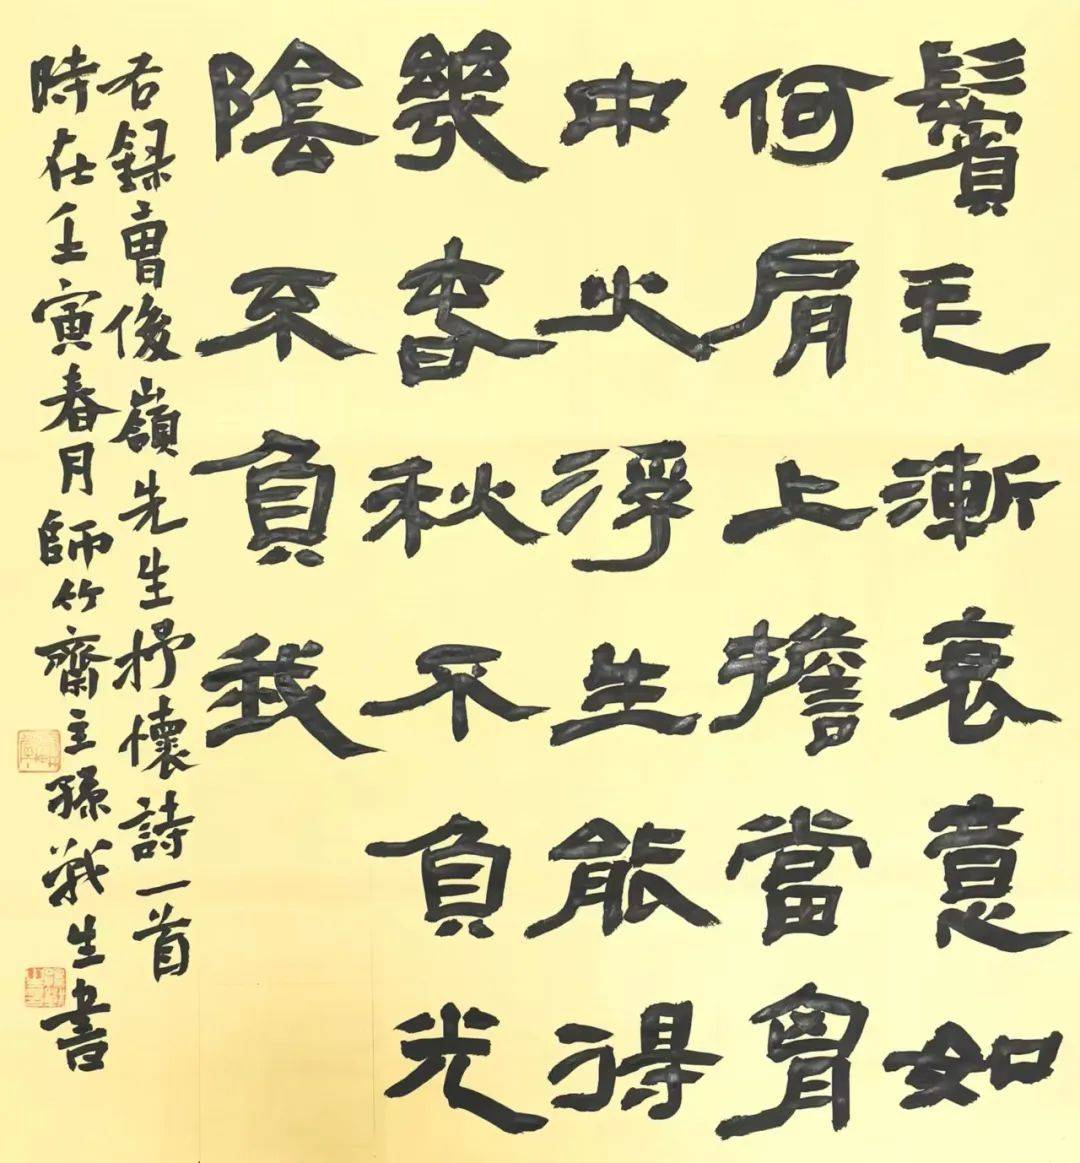 鬢毛漸衰意如
何肩上擔當胷
中火浮生能得
幾春秋不負光
陰不負我
右録曹俊嶺先生抒懷詩一首
時在壬寅春月師竹齋主孫戰生書